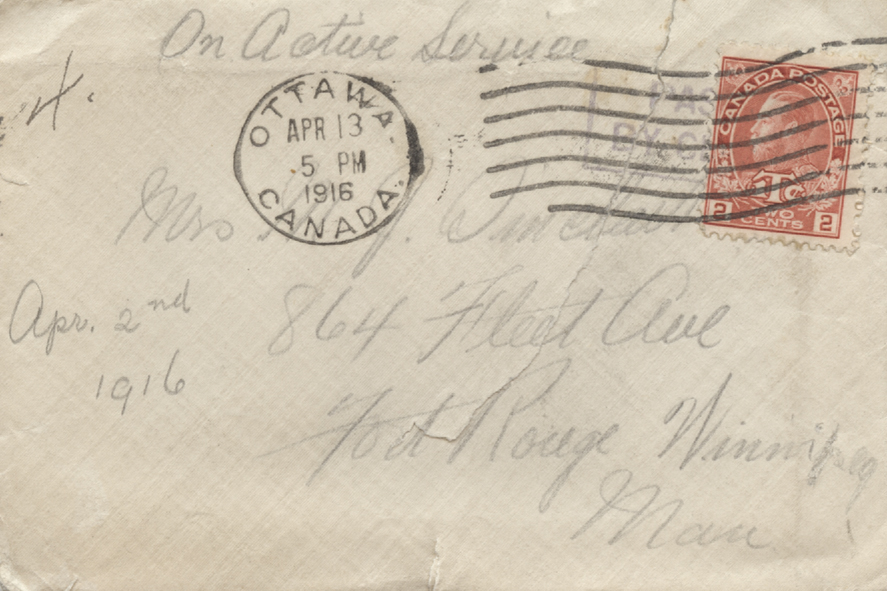 On Active Service
4.
OTTAWA.
APR 13
5 PM
1916
CANADA.
PAS
BY C
CANADA POSTAGE
1Tc
2 TWO CENTS 2
Mrs W. J.
864 Fleet Ave
Fort Rouge Winnipeg
Man
Apr. 2nd
1916